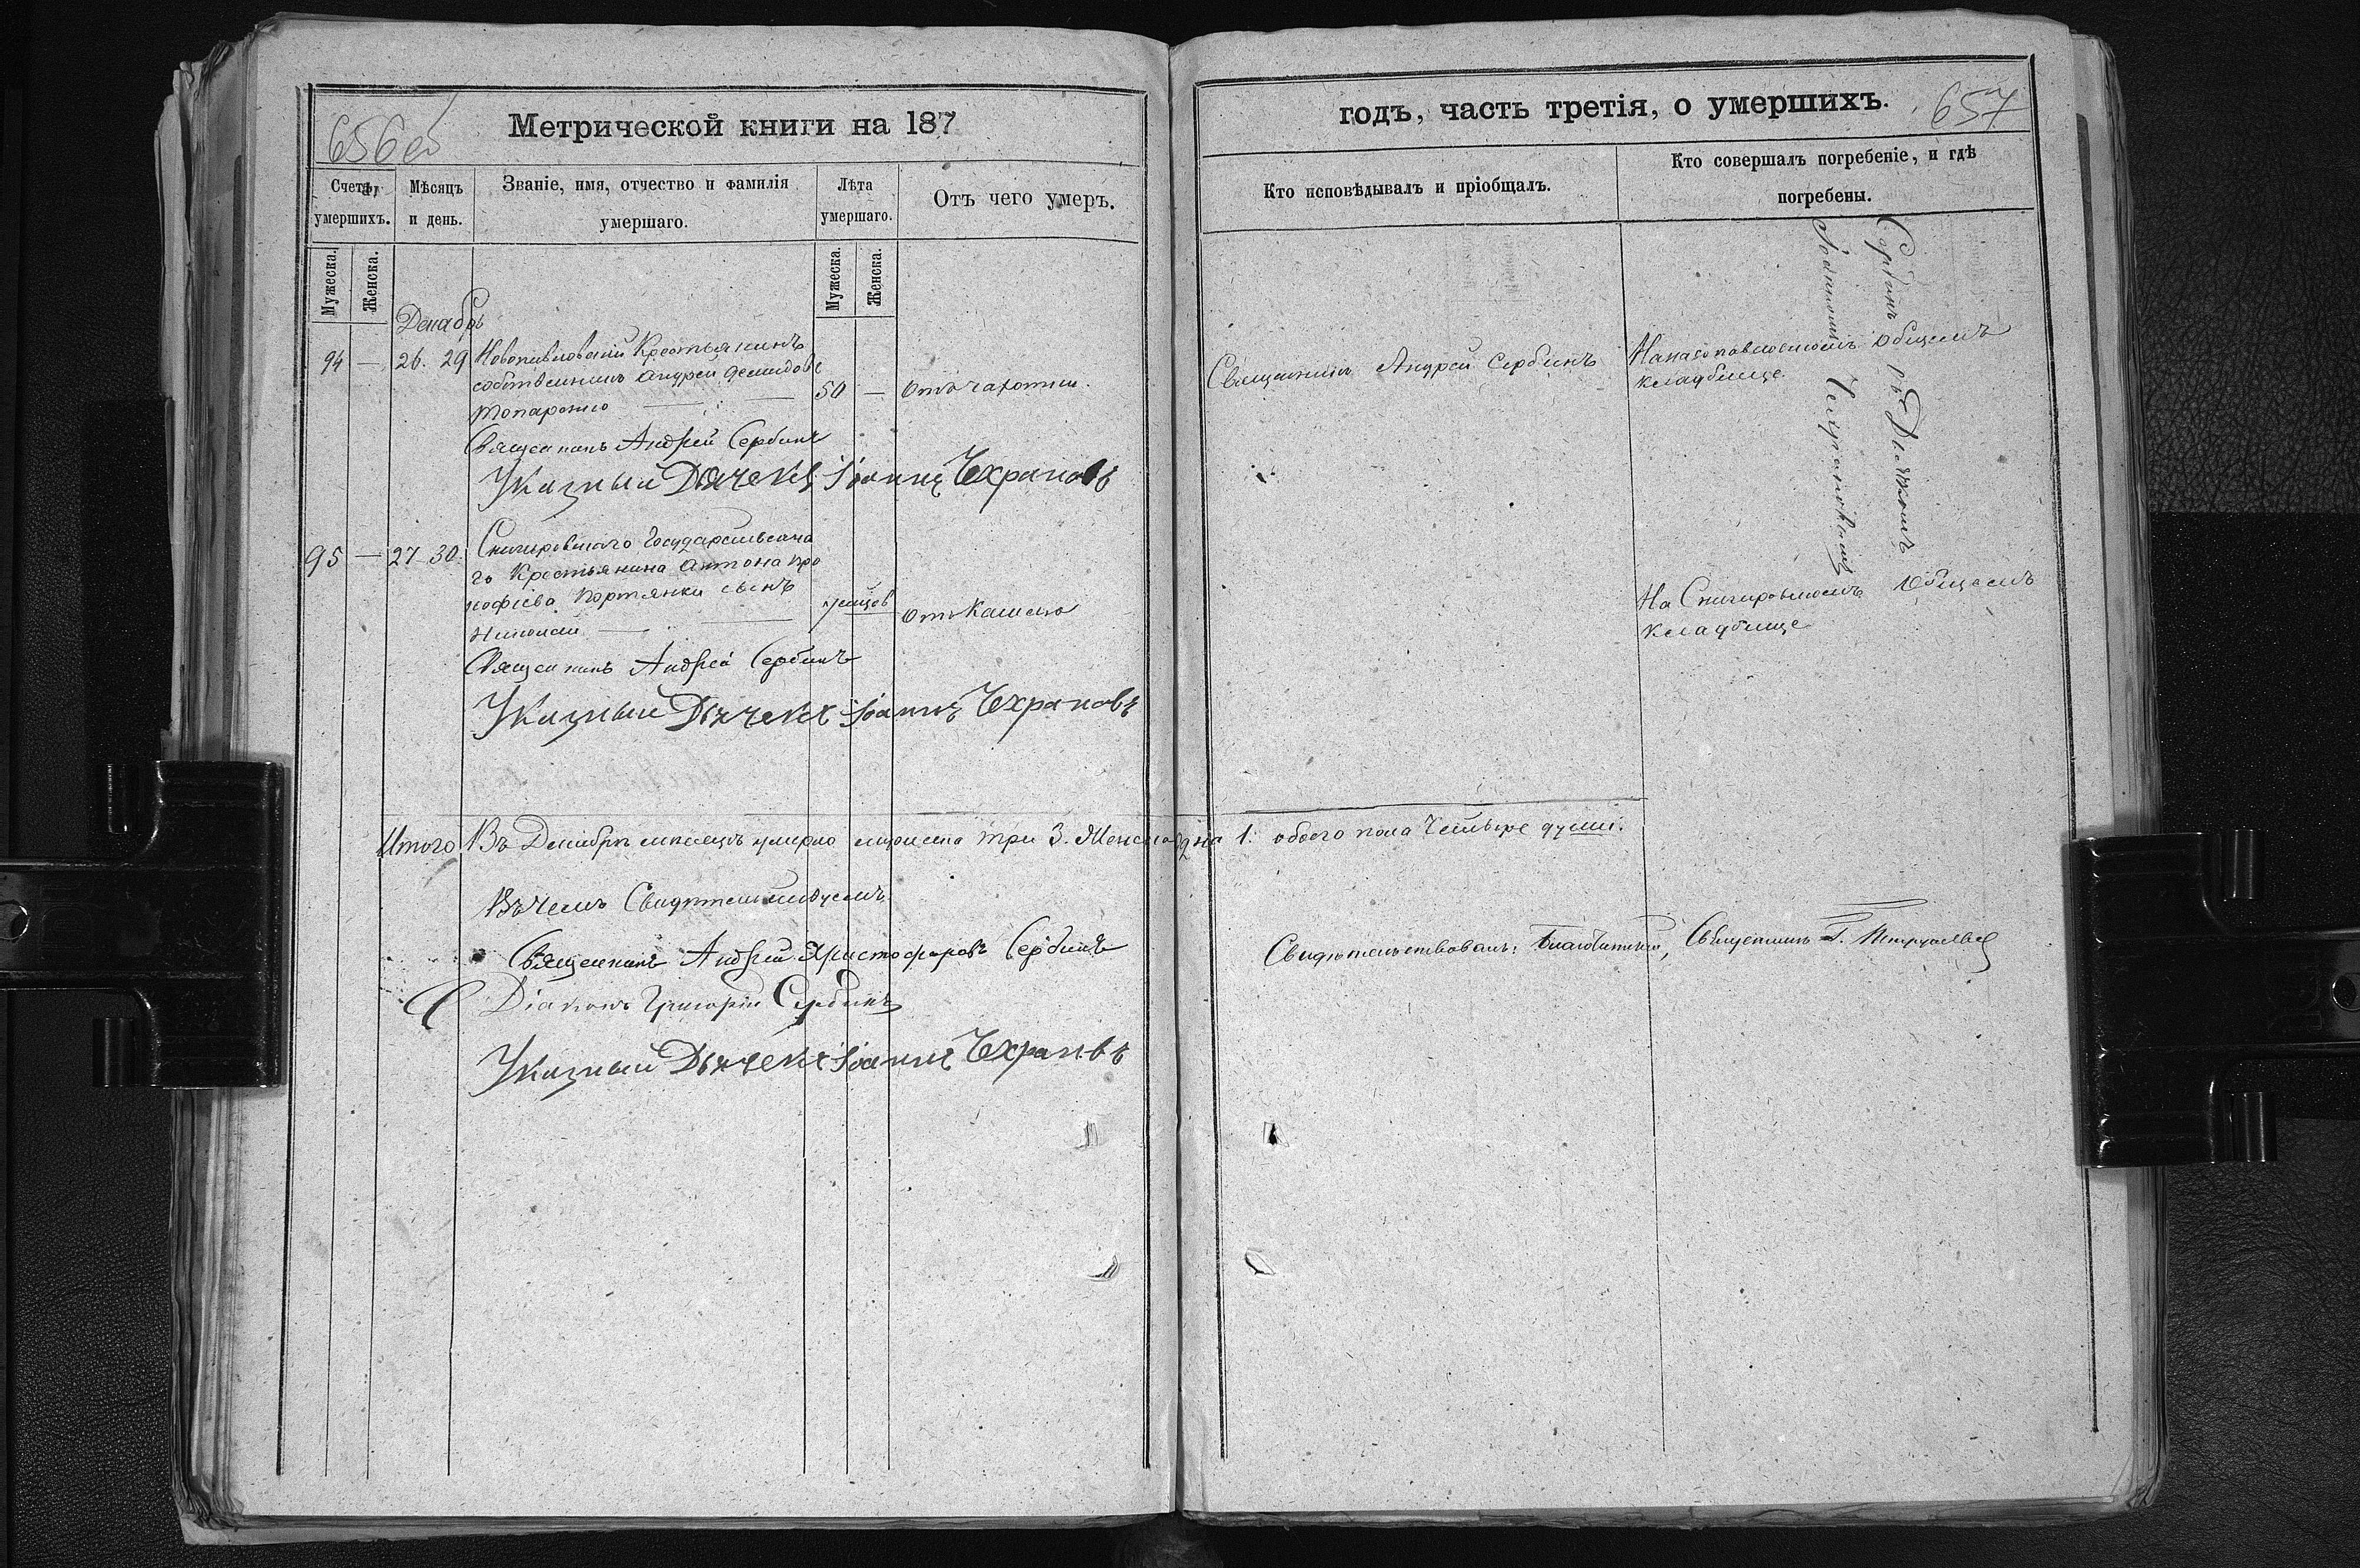 656 об
Метрической книги на 187
Счетъ умершихъ.
Мѣсяцъ и день.
Званіе, имя, отчество и фамилія умершаго.
Лѣта умершаго.
Отъ чего умеръ.
Мужеска.
Женска.
Мужеска.
Женска.
Декабрь
94 — 26. 29
Крестьянинъ
собственникъ Андрей Демидовъ
50 —
Отъ чахотки.
Священникъ Андрей Сербинъ
Указный Дьячекъ Іоаннъ Чехрановъ
95 — 27 30.
Снигировскаго Государственна
го Крестьянина Антона Про
кофіева Портянки сынъ
Николай
Отъ Кашлю
Священникъ Андрей Сербинъ
Указный Дьячекъ Іоаннъ Чехрановъ
Итого Въ Декабрѣ месяцѣ умерло мужеска три 3. Женска одна 1. обоего пола Четыре души.
Въ чемъ Свидѣтельствуемъ
Священникъ Андрей Христофоровъ Сербинъ
Діаконъ Григорій Сербинъ
Указный Дьячекъ Іоаннъ Чехрановъ
годъ, часть третія, о умершихъ.
657
Кто исповѣдывалъ и пріобщалъ.
Кто совершалъ погребеніе, и гдѣ погребены.
Священникъ Андрей Сербинъ
Общемъ
кладбище
Сербинъ съ Дьячкомъ
Іоанномъ Чехрановымъ
На Снигировскомъ Общемъ
кладбище
Свидѣтельствовалъ: Благочинный, Священникъ Г.